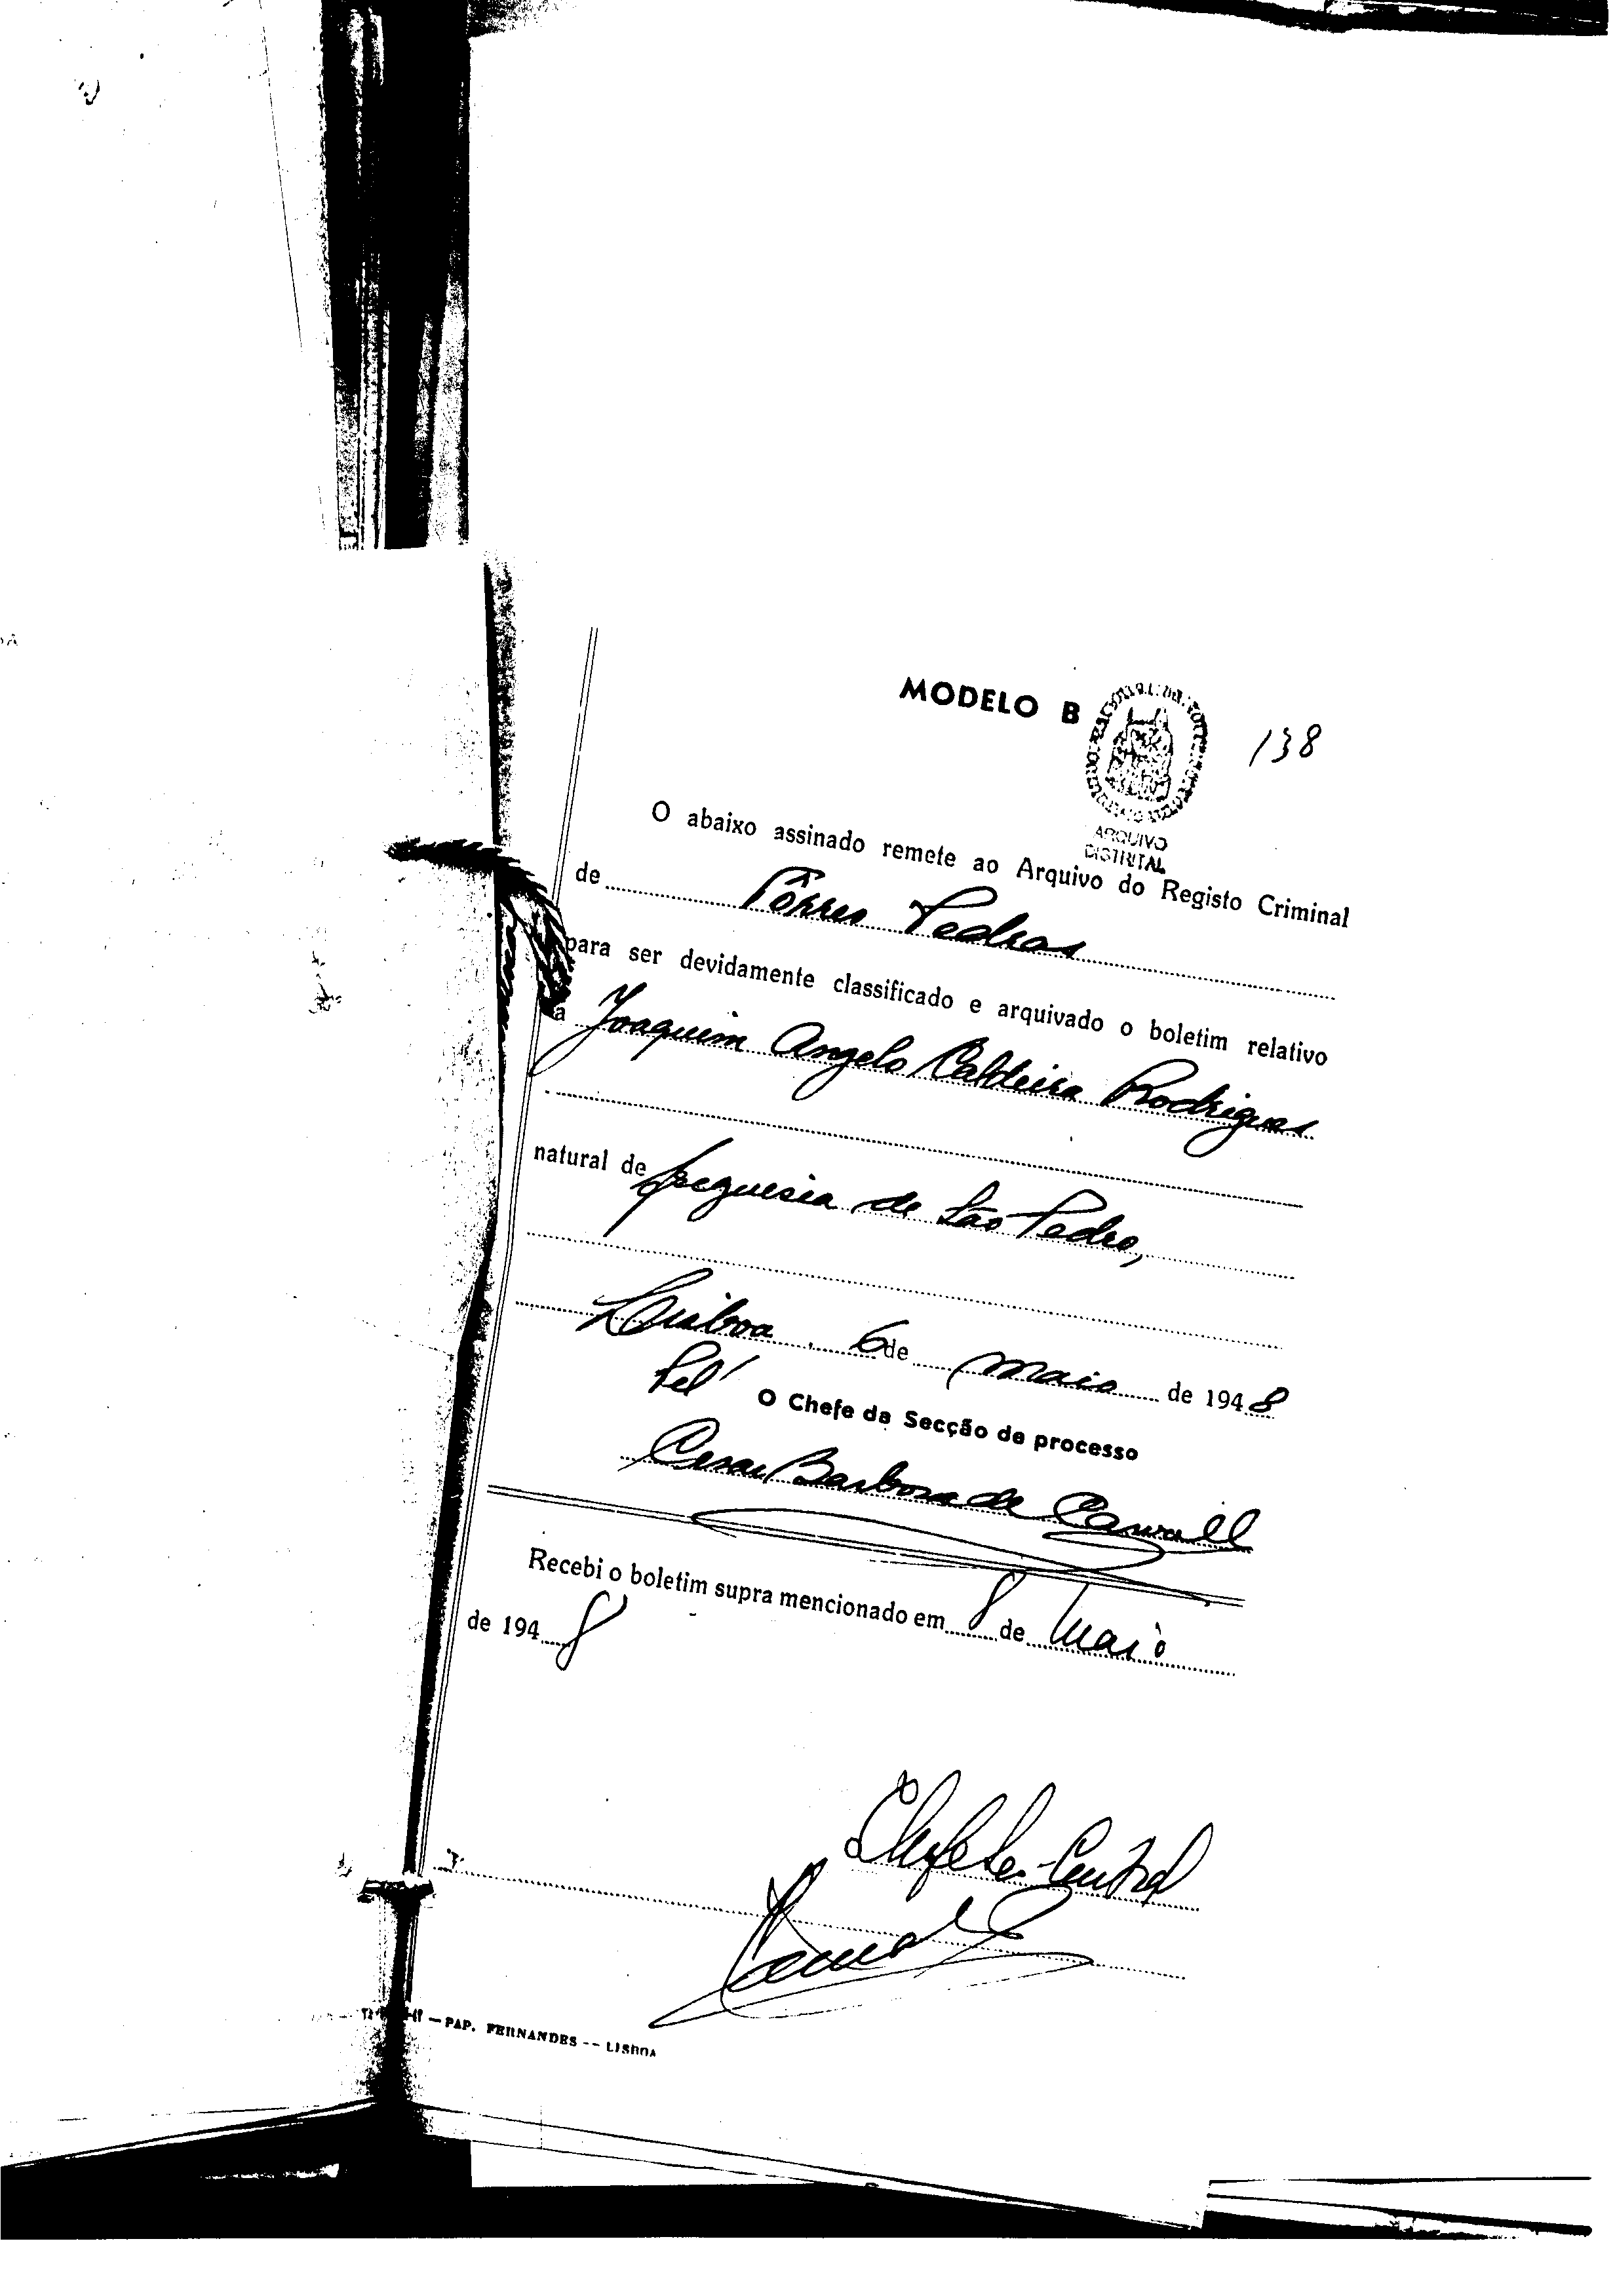 MODELO B
138
ARQUIVO
DISTRITAL
O abaixo assinado remete ao Arquivo do Registo Criminal
de Tôrres Vedras
para ser devidamente classificado e arquivado o boletim relativo
a Joaquim Angelo Caldeira Rodrigues
natural de freguesia de São Pedro,
Lisboa, 6 de maio de 1948
Pel'
O Chefe da Secção de processo
Cesar Barbosa de
Recebi o boletim supra mencionado em 8 de Maio
de 1948
O Chefe Sec. Central
— PAP. FERNANDES -- LISBOA